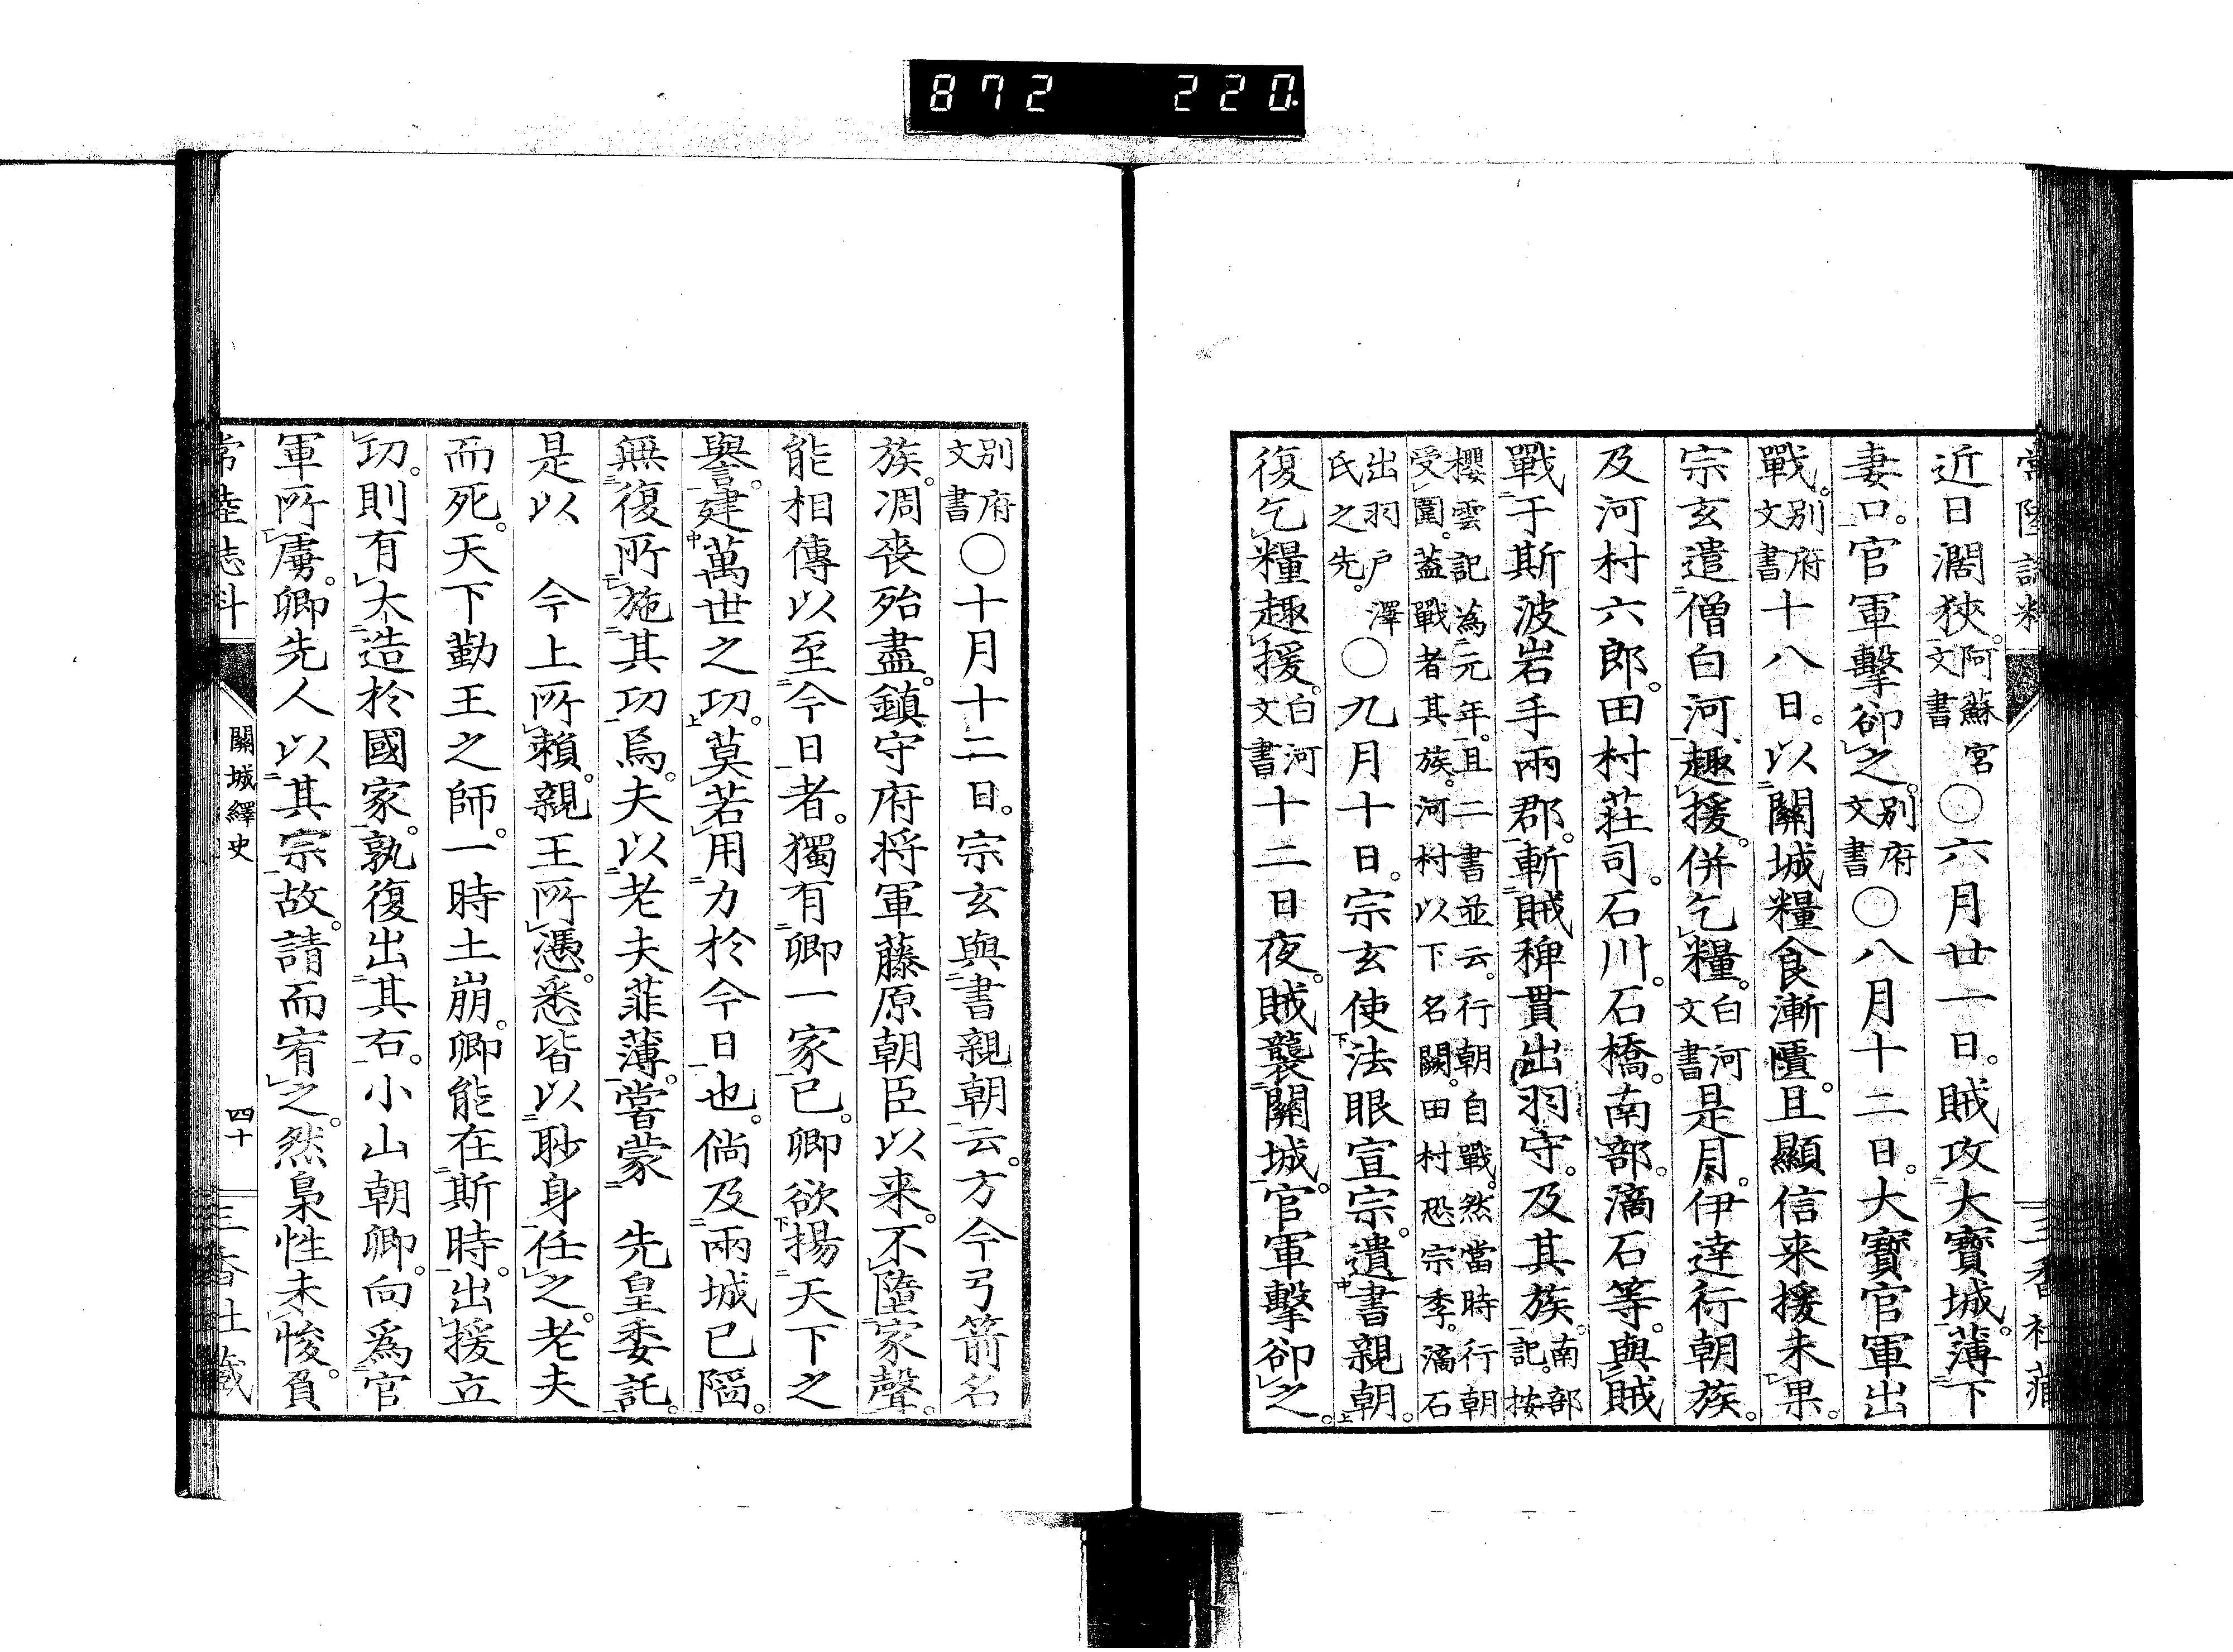 872 220
近日濶狹。阿蘇宮文書〇六月廿一日。賊攻大寶城。薄下
妻口。官軍擊卻之。別府文書〇八月十二日。大寶官軍出
戰。別府文書十八日。以關城糧食漸匱。且顯信来援未果。
宗玄遣僧白河趣援。併乞糧。白河文書是月。伊達行朝族。
及河村六郎。田村莊司。石川。石橋。南部。滴石等。與賊
戰于斯波岩手兩郡。斬賊稗貫出羽守。及其族。南部記。按
櫻雲記為元年。且二書並云。行朝自戰。然當時行朝
受圍。蓋戰者其族。河村以下名闕。田村恐宗季。滴石
出羽戸澤氏之先。〇九月十日。宗玄使法眼宣宗。遺書親朝。
復乞糧趣援。白河文書十二日夜。賊襲關城。官軍擊卻之。
別府文書〇十月十二日。宗玄與書親朝云。方今弓箭名
族。凋喪殆盡。鎮守府将軍藤原朝臣以来。不墮家聲。
能相傳以至今日者。獨有卿一家已。卿欲揚天下之
譽。建萬世之功。莫若用力於今日也。倘及兩城已陷。
無復所施其功焉。夫以老夫菲薄。嘗蒙 先皇委託。
是以 今上所賴。親王所憑。悉皆以眇身任之。老夫
而死。天下勤王之師。一時土崩。卿能在斯時。出援立
功。則有大造於國家。孰復出其右。小山朝卿。向爲官
軍所虜。卿先人以其宗故。請而宥之。然梟性未悛。負
常陸志料
關城繹史
四十